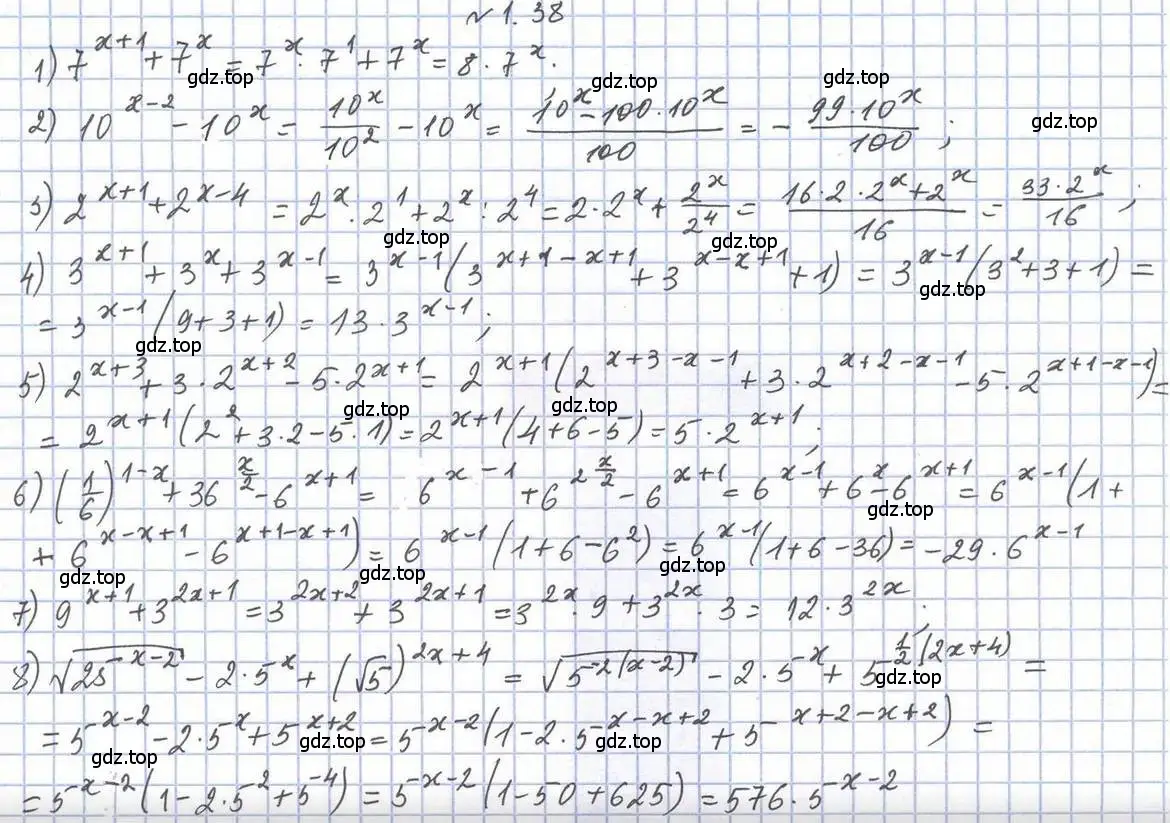 № 1.38
1) 7^{x+1} + 7^x = 7^x · 7^1 + 7^x = 8 · 7^x.
gdz.top gdz.top gdz.top
2) 10^{x-2} - 10^x = \frac{10^x}{10^2} - 10^x = \frac{10^x - 100 · 10^x}{100} = - \frac{99 · 10^x}{100} ;
gdz.top
3) 2^{x+1} + 2^{x-4} = 2^x · 2^1 + 2^x : 2^4 = 2 · 2^x + \frac{2^x}{2^4} = \frac{16 · 2 · 2^x + 2^x}{16} = \frac{33 · 2^x}{16} ;
gdz.top gdz.top
4) 3^{x+1} + 3^x + 3^{x-1} = 3^{x-1} (3^{x+1-x+1} + 3^{x-x+1} + 1) = 3^{x-1} (3^2 + 3 + 1) =
gdz.top
= 3^{x-1} (9 + 3 + 1) = 13 · 3^{x-1} ;
gdz.top
5) 2^{x+3} + 3 · 2^{x+2} - 5 · 2^{x+1} = 2^{x+1} (2^{x+3-x-1} + 3 · 2^{x+2-x-1} - 5 · 2^{x+1-x-1}) =
gdz.top gdz.top
= 2^{x+1} (2^2 + 3 · 2 - 5 · 1) = 2^{x+1} (4 + 6 - 5) = 5 · 2^{x+1} ;
6) (\frac{1}{6})^{1-x} + 36^{\frac{x}{2}} - 6^{x+1} = 6^{x-1} + 6^{2\frac{x}{2}} - 6^{x+1} = 6^{x-1} + 6^x - 6^{x+1} = 6^{x-1} (1 +
gdz.top
+ 6^{x-x+1} - 6^{x+1-x+1}) = 6^{x-1} (1 + 6 - 6^2) = 6^{x-1} (1 + 6 - 36) = -29 · 6^{x-1}
gdz.top gdz.top gdz.top
7) 9^{x+1} + 3^{2x+1} = 3^{2x+2} + 3^{2x+1} = 3^{2x} · 9 + 3^{2x} · 3 = 12 · 3^{2x} ;
8) \sqrt{25^{-x-2}} - 2 · 5^{-x} + (\sqrt{5})^{2x+4} = \sqrt{5^{-2(x-2)}} - 2 · 5^{-x} + 5^{-\frac{1}{2}(2x+4)} =
gdz.top
= 5^{-x-2} - 2 · 5^{-x} + 5^{-x+2} = 5^{-x-2} (1 - 2 · 5^{-x-x+2} + 5^{-x+2-x+2}) =
gdz.top gdz.top gdz.top
= 5^{-x-2} (1 - 2 · 5^{-2} + 5^{-4}) = 5^{-x-2} (1 - 50 + 625) = 576 · 5^{-x-2}